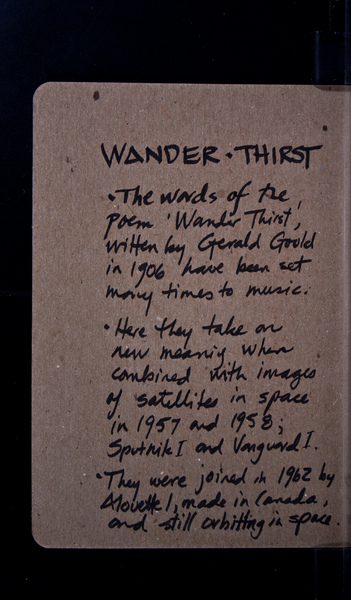 WANDER · THIRST
• The words of the
poem 'Wander Thirst',
written by Gerald Gould
in 1906 have been set
many times to music.
• Here they take on
new meaning when
combined with images
of satellites in space
in 1957 and 1958;
Sputnik I and Vanguard I.
• They were joined in 1962 by
Alouette 1, made in Canada,
and still orbitting in space.